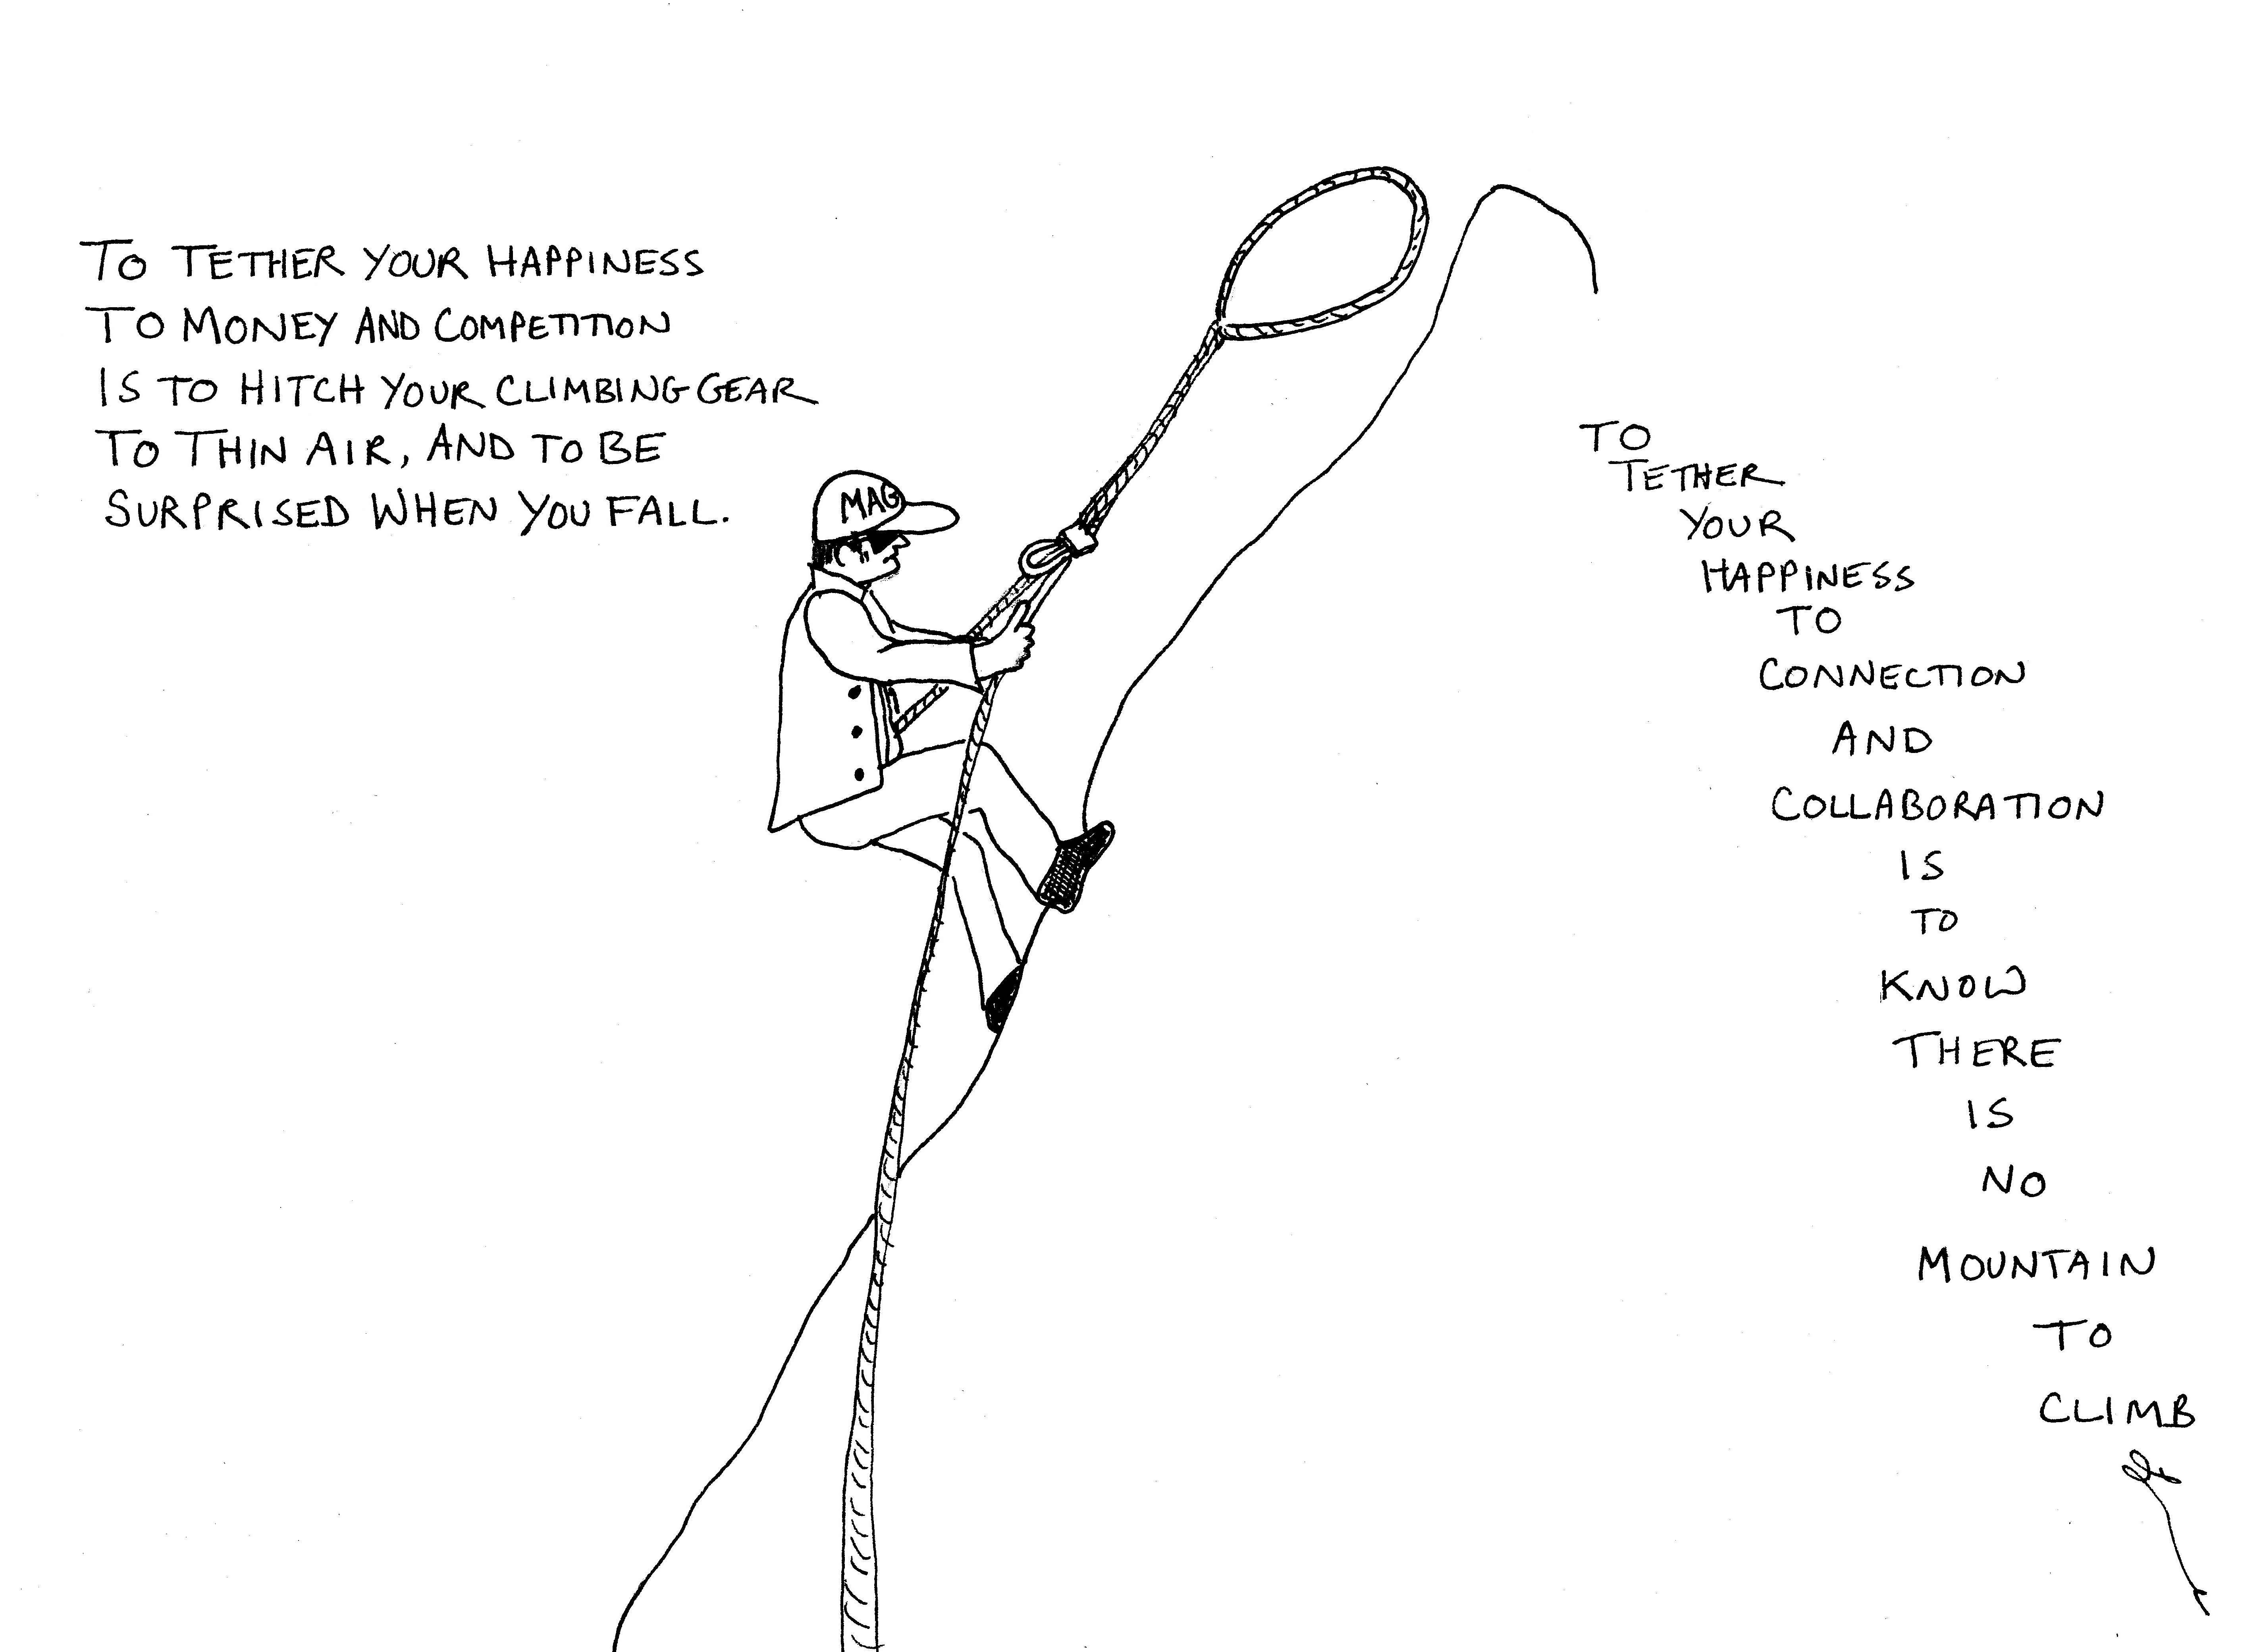 TO TETHER YOUR HAPPINESS
TO MONEY AND COMPETITION
IS TO HITCH YOUR CLIMBING GEAR
TO THIN AIR, AND TO BE
SURPRISED WHEN YOU FALL.
MAG
TO
TETHER
YOUR
HAPPINESS
TO
CONNECTION
AND
COLLABORATION
IS
TO
KNOW
THERE
IS
NO
MOUNTAIN
TO
CLIMB